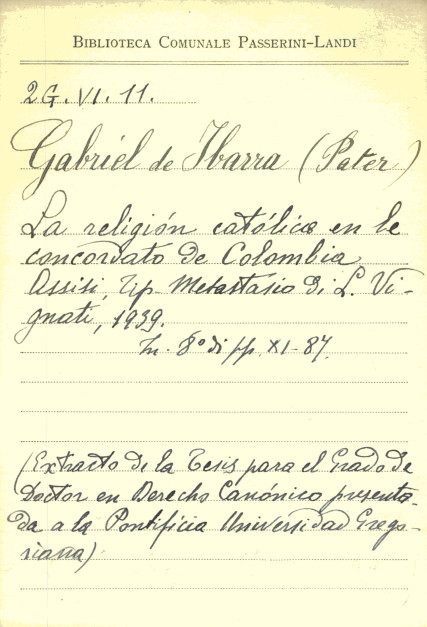 BIBLIOTECA COMUNALE PASSERINI-LANDI
2G.VI.11.
Gabriél de Ibarra (Pater)
La religión católica en le
concordato de Colombia
Assisi, Tip. Metastasio di L. Vi-
gnati, 1939.
In. 8° di pp. XI-87.
(Extracto de la Tesis para el Grado de
Doctor en Derecho Canónico presenta-
da a la Pontificia Universidad Grego-
riana)